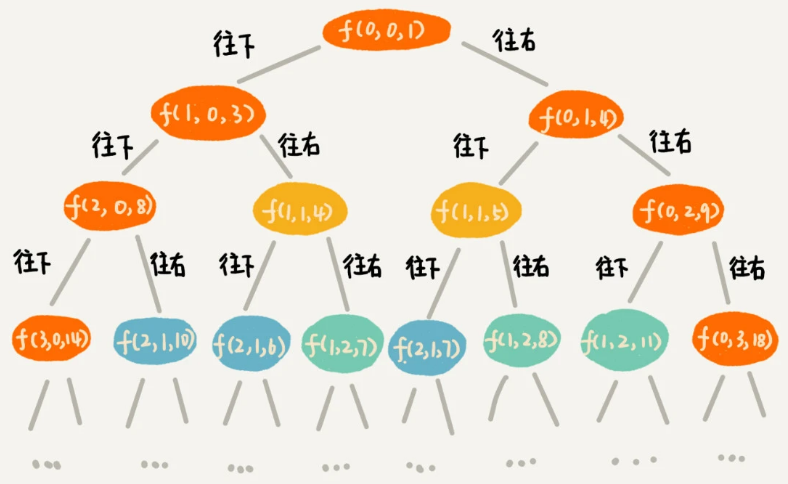 f(0,0,1)
往下 往右
f(1,0,3) f(0,1,4)
往下 往右 往下 往右
f(2,0,8) f(1,1,4) f(1,1,5) f(0,2,9)
往下 往右 往下 往右 往下 往右 往下 往右
f(3,0,14) f(2,1,10) f(2,1,6) f(1,2,7) f(2,1,7) f(1,2,8) f(1,2,11) f(0,3,18)
... ... ... ... ... ... ... ...